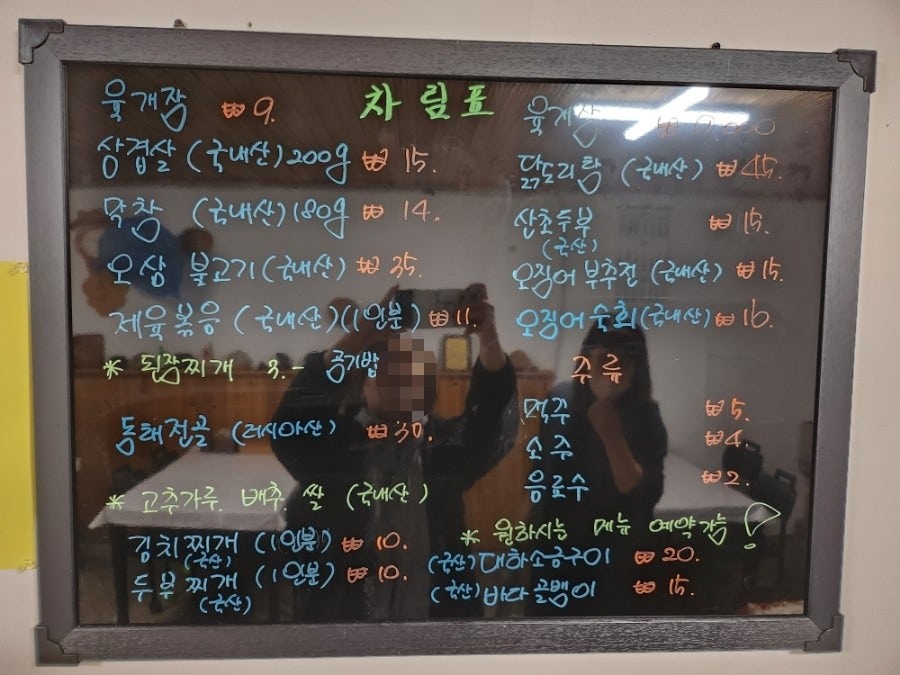 차림표
육개장 ₩ 9.
삼겹살 (국내산) 200g ₩ 15.
막창 (국내산) 180g ₩ 14.
오삼 불고기 (국내산) ₩ 35.
제육볶음 (국내산) (1인분) ₩ 11.
* 된장찌개 3.- 공기밥
동태전골 (러시아산) ₩ 30.
* 고추가루. 배추. 쌀 (국내산)
김치찌개 (1인분) ₩ 10.
(국산)
두부찌개 (1인분) ₩ 10.
(국산)
육개장 ₩
닭도리탕 (국내산) ₩ 45.
산초두부 ₩ 15.
(국산)
오징어 부추전 (국내산) ₩ 15.
오징어 숙회 (국내산) ₩ 16.
주류
맥주 ₩ 5.
소주 ₩ 4.
음료수 ₩ 2.
* 원하시는 메뉴 예약가능!
(국산) 대하소금구이 ₩ 20.
(국산) 바다골뱅이 ₩ 15.